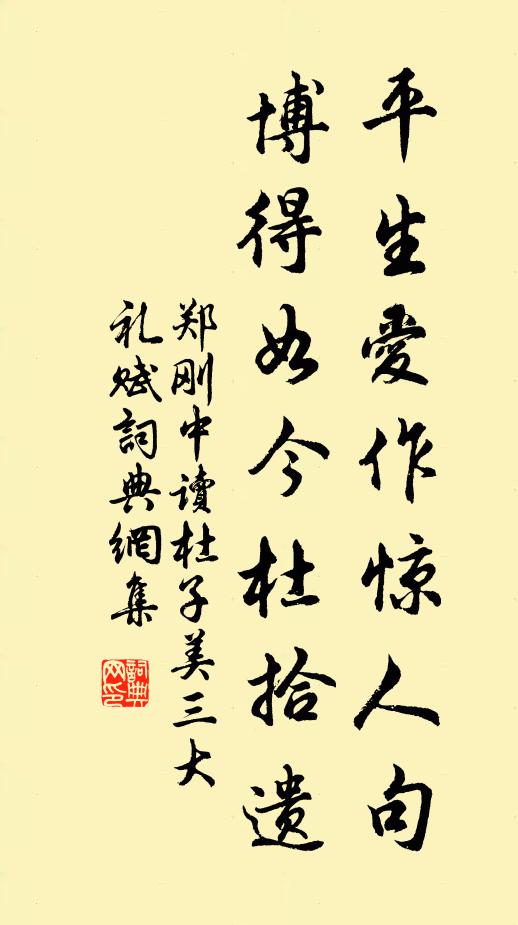 平生愛作惊人句
博得如今杜拾遗
郑刚中读杜子美三大
礼赋詞典網集
詞典网印